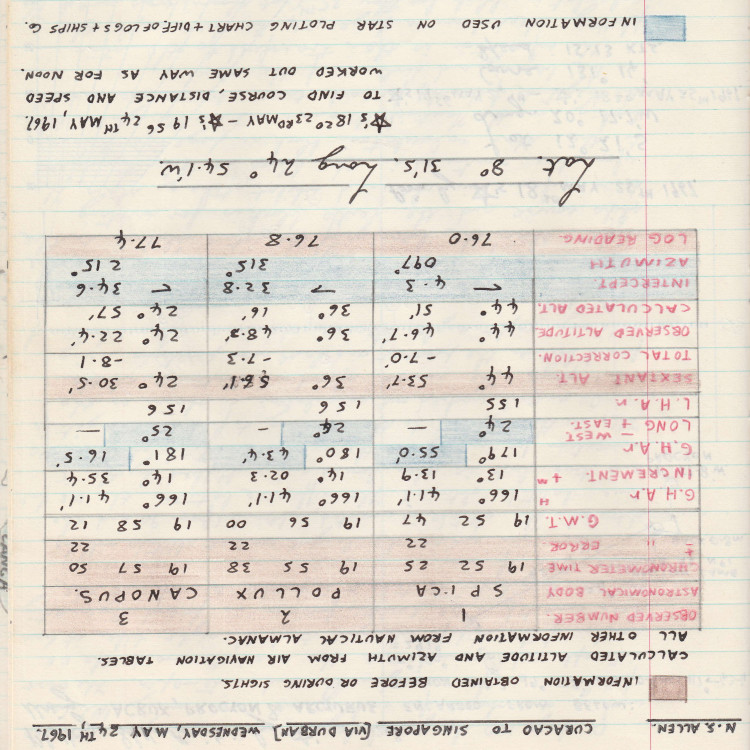 N.S. ALLEN. CURACAO TO SINGAPORE [VIA DURBAN] WEDNESDAY, MAY 24TH, 1967.
INFORMATION OBTAINED BEFORE OR DURING SIGHTS.
CALCULATED ALTITUDE AND AZIMUTH FROM AIR NAVIGATION TABLES.
ALL OTHER INFORMATION FROM NAUTICAL ALMANAC.
OBSERVED NUMBER. 1 2 3
ASTRONOMICAL BODY SPICA POLLUX CANOPUS.
CHRONOMETER TIME 19 52 25 19 55 38 19 57 50
± " ERROR. 22 22 22
G.M.T. 19 52 47 19 56 00 19 58 12
G.H.A.r H 166° 41.1' 166° 41.1' 166° 41.1'
INCREMENT. +m 13° 13.9 14° 02.3 14° 35.4
G.H.A.r 179° 55.0' 180° 43.4' 181° 16.5'
LONG - WEST + EAST. 24° — — 25° —
L.H.A.r 155 156 156
SEXTANT ALT. 44 53.7' 36° 56.1' 24° 30.5'
TOTAL CORRECTION. -7.0 -7.3 -8.1
OBSERVED ALTITUDE 44° 46.7' 36° 48.8' 24° 22.4'
CALCULATED ALT. 44° 51' 36° 16' 24° 57'
INTERCEPT 4.3 32.8 34.6
AZIMUTH 097° 315° 215°
LOG READING. 76.0 76.8 77.4
Lat. 8° 31's. Long 24° 54.1'w.
☆'s 18 20 23RD MAY – ☆'s 19 56 24TH MAY, 1967.
TO FIND COURSE, DISTANCE AND SPEED
WORKED OUT SAME WAY AS FOR NOON.
INFORMATION USED ON STAR PLOTING CHART + DIFF. OF LOGS + SHIPS Co.